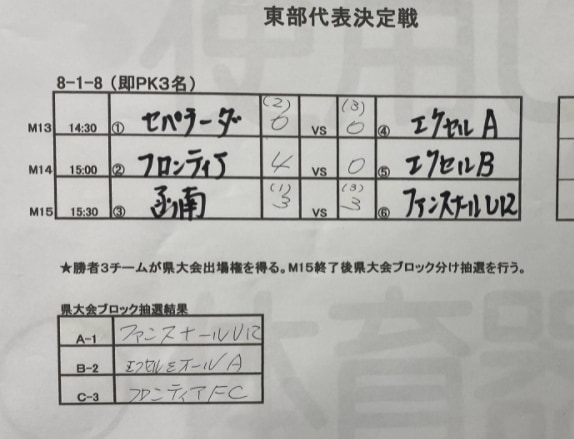 東部代表決定戦
8-1-8 (即PK3名)
M13 14:30 ① セペラーダ (2) 0 vs (3) 0 ④ エクセルA
M14 15:00 ② フロンティア 4 vs 0 ⑤ エクセルB
M15 15:30 ③ 函南 (1) 3 vs (3) 3 ⑥ ファンスナールU12
★勝者3チームが県大会出場権を得る。M15終了後県大会ブロック分け抽選を行う。
県大会ブロック抽選結果
A-1 ファンスナールU12
B-2 エクセルシオールA
C-3 フロンティアFC